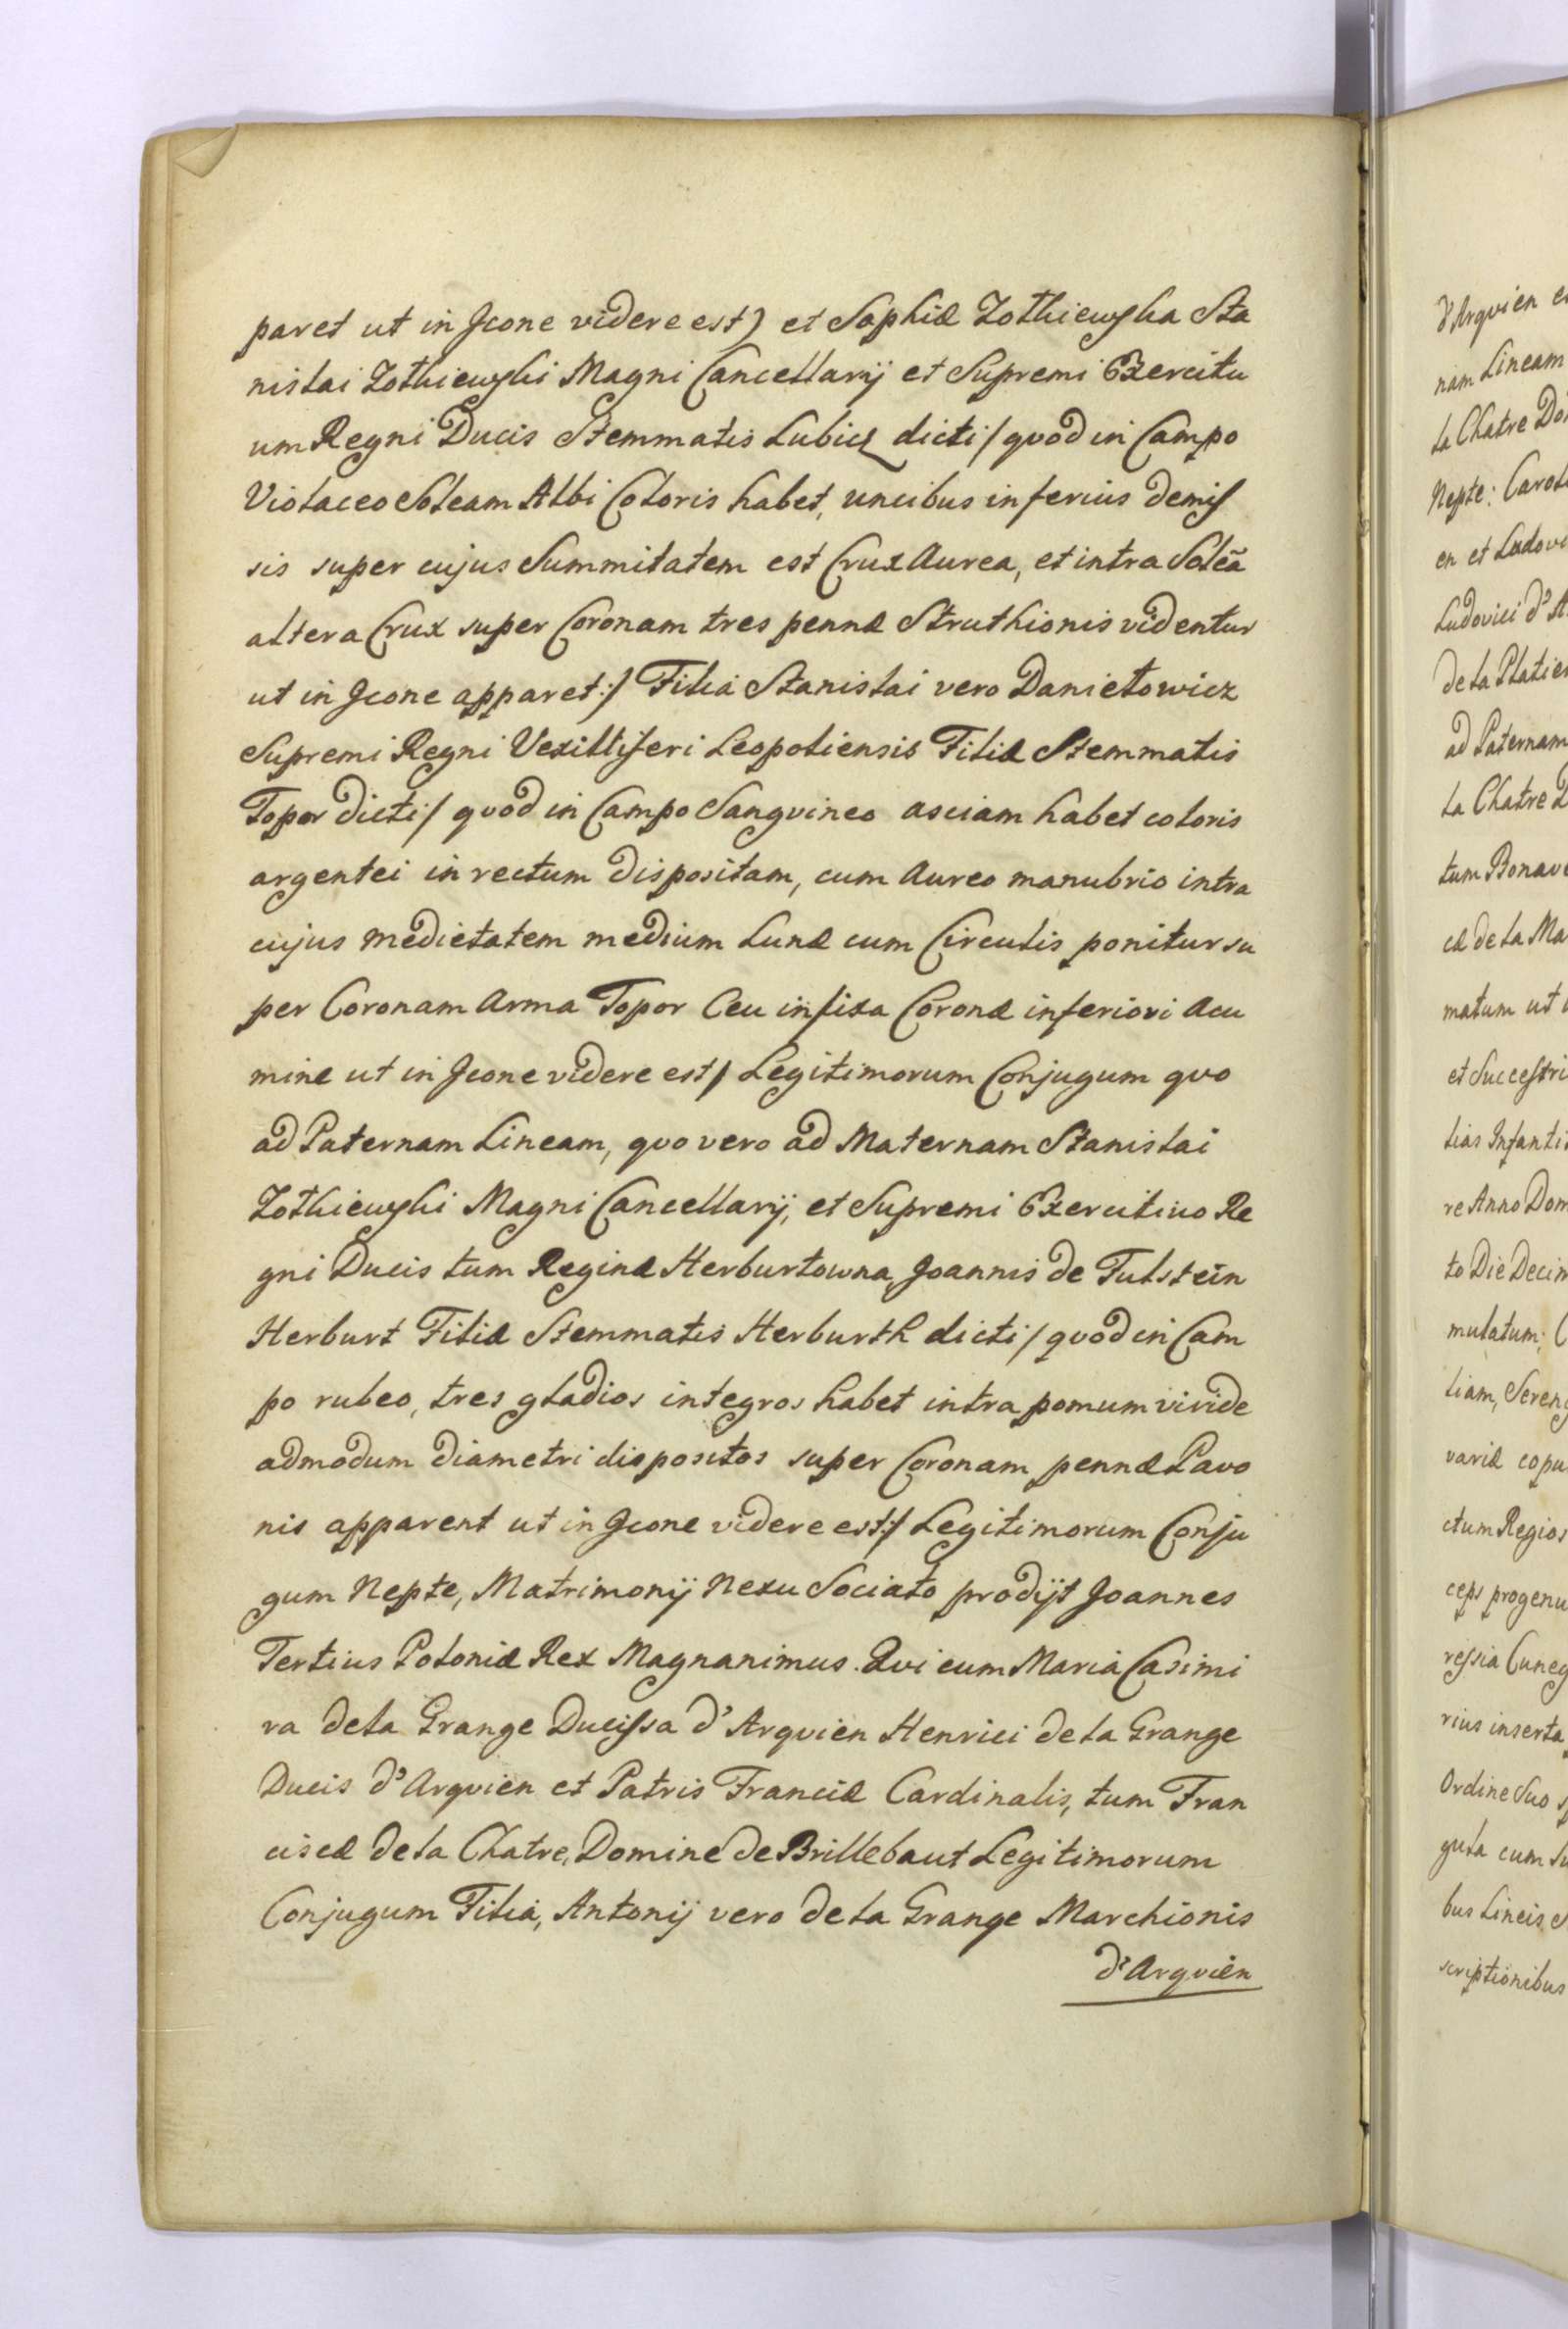 paret ut in Icone videre est) et Sophiæ Zolkiewska Sta
nislai Zolkiewski Magni Cancellarij et Supremi Exercitu
um Regni Ducis Stemmatis Lubicz dicti/ quod in Campo
Violaceo Soleam Albi Coloris habet, uncibus inferius demis
sis super cujus Summitatem est Crux Aurea, et intra Soleã
altera Crux super Coronam tres pennæ Struthionis videntur
ut in Icone apparet:/ Filia Stanislai vero Danielowicz
Supremi Regni Vexilliferi Leopoliensis Filiæ Stemmatis
Topor dicti/ quod in Campo Sangvineo asciam habet coloris
argentei in rectum dispositam, cum Aureo manubrio intra
cujus medietatem medium Lunæ cum Circulis ponitur su
per Coronam Arma Topor Ceu infixa Coronæ inferiori Acu
mine ut in Icone videre est/ Legitimorum Conjugum quo
ad Paternam Lineam, quo vero ad Maternam Stanislai
Zolkiewski Magni Cancellarij, et Supremi Exercituo Re
gni Ducis tum Reginæ Herburtowna, Joannis de Fulstein
Herburt Filiæ Stemmatis Herburth dicti/ quod in Cam
po rubeo, tres gladios integros habet intra pomum viride
admodum diametri dispositos super Coronam pennæ Pavo
nis apparent ut in Icone videre est:/ Legitimorum Conju
gum Nepte, Matrimonij Nexu Sociato prodijt Joannes
Tertius Poloniæ Rex Magnanimus. Qui cum Maria Casimi
ra de la Grange Ducissa d'Arqvien Henrici de la Grange
Ducis d'Arqvien et Patris Franciæ Cardinalis, tum Fran
ciscæ de la Chatre, Domine de Brillebaut Legitimorum
Conjugum Filia, Antonij vero de la Grange Marchionis
d'Arqvien
d'Arqvien
nam Lineam
la Chatre
Nepte:
en et
Ludovici
de la
ad Paternam
la Chatre
tum
cæ de la
matum ut
et
lias
re Anno
to Die
mulatum;
liam,
variæ
ctum Regios
ceps
ressia
rius inserta
Ordine Suo
gula cum
bus Lineis
scriptionibus